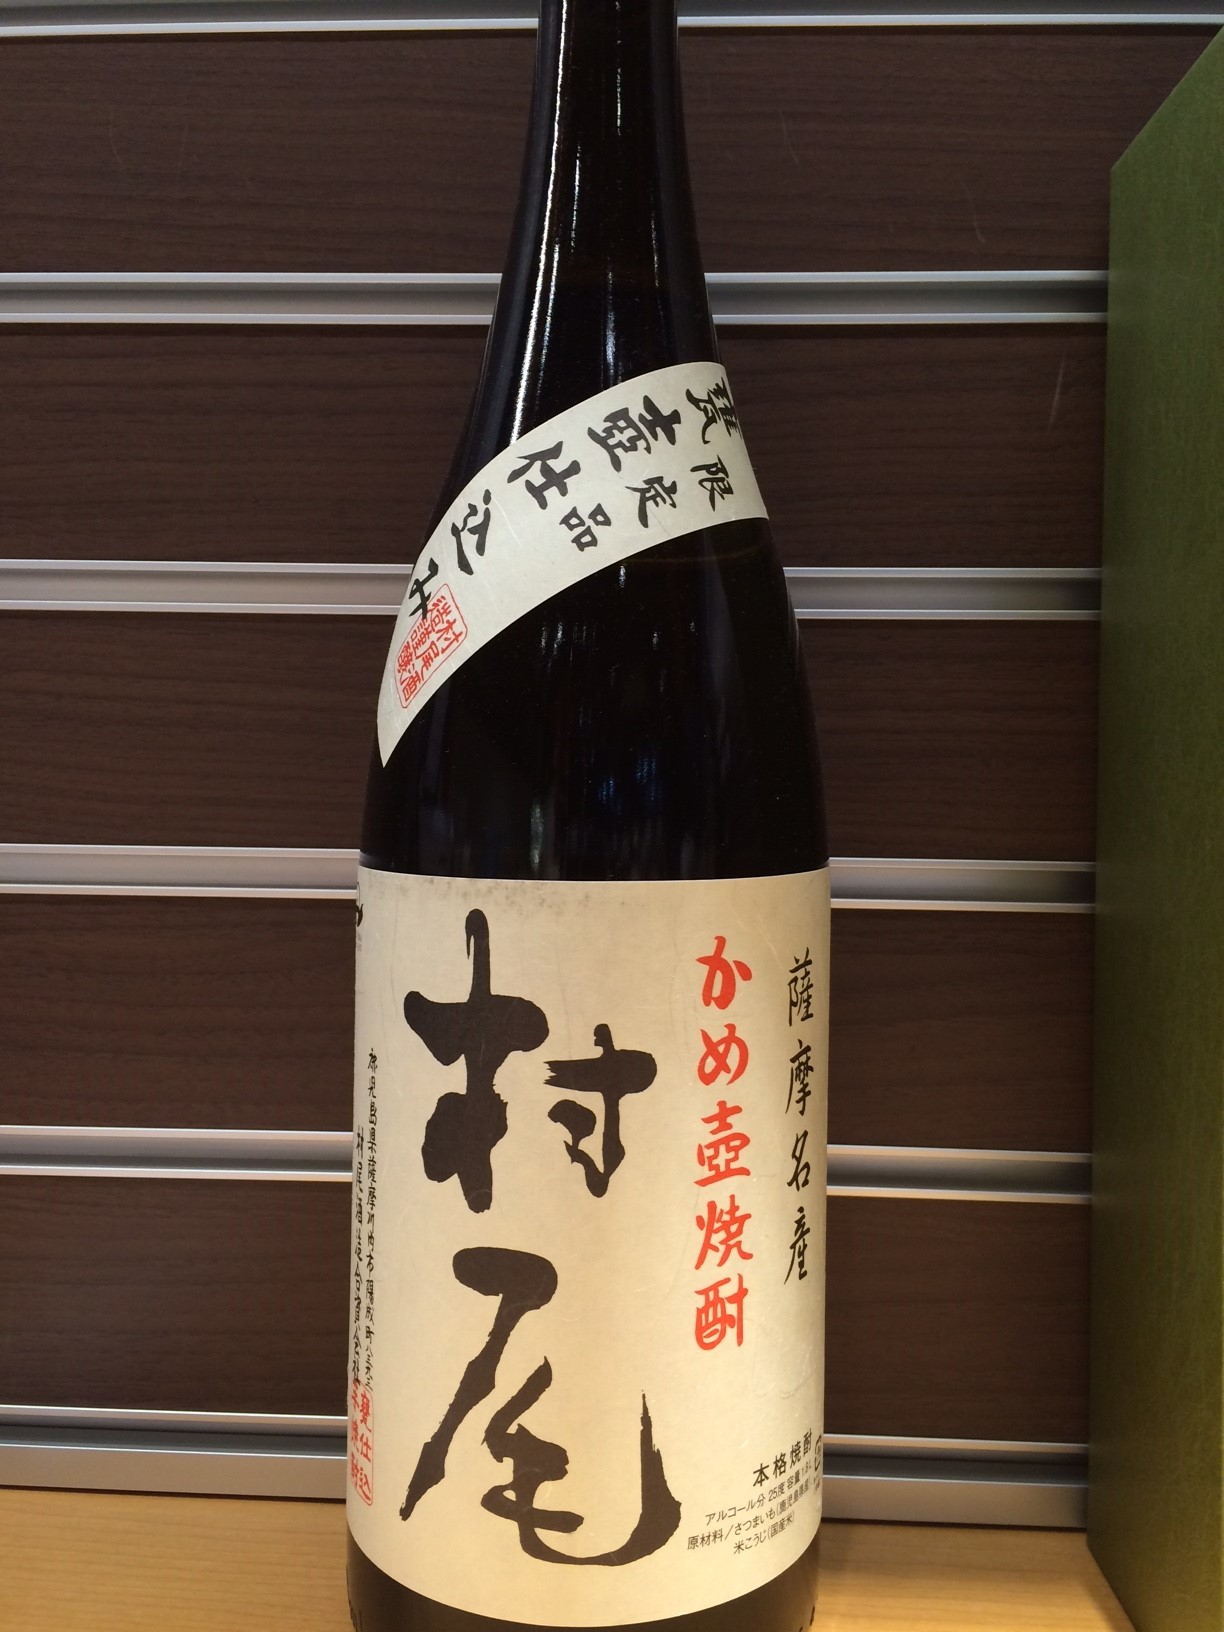 甕壺仕込み
限定品
村尾酒
造謹醸
薩摩名産
かめ壺焼酎
村尾
本格焼酎
アルコール分 25度 容量 1.8L
原材料/さつまいも(鹿児島県産)
米こうじ(国産米)
鹿児島県薩摩川内市陽成町
村尾酒造合資会社
甕仕込
本焼酎